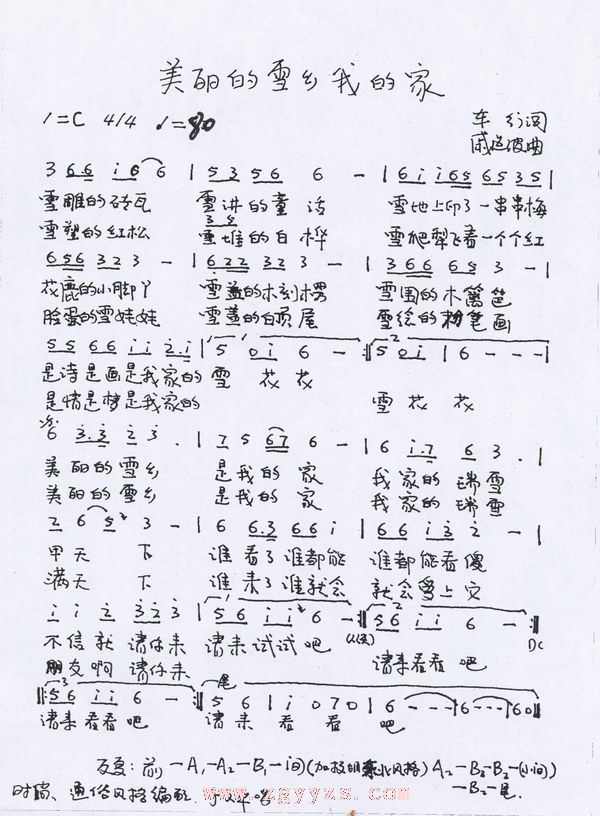 美丽的雪乡我的家
1=C 4/4 ♩=80
车行词
戚建波曲
3 6 6 i 6 6 | 5 3 5 6 6 - | 6 i i 6 5 6 5 3 5 |
雪雕的砖瓦 雪讲的童话 雪地上印了一串串梅
雪塑的红松 雪堆的白桦 雪爬犁飞着一个个红
6 5 6 3 2 3 - | 6 2 2 3 2 3 - | 3 6 6 6 5 3 - |
花鹿的小脚丫 雪盖的木刻楞 雪围的木篱笆
脸蛋的雪娃娃 雪盖的白顶屋 雪绘的粉笔画
5 5 6 6 i i 2 i | 5 0 i 6 - :‖ 5 0 i | 6 - - - |
是诗是画是我家的 雪花花
是情是梦是我家的 雪花花
6 3 3 2 3 . | 7 5 6 7 6 - | 6 i 7 6 3 . |
美丽的雪乡 是我的家 我家的瑞雪
美丽的雪乡 是我的家 我家的瑞雪
2 6 5 3 - | 6 6 3 6 6 i | 6 6 i 3 2 - |
甲天下 谁看了谁都能 谁都能看傻
满天下 谁来了谁就会 就会爱上它
i i 2 3 2 3 | 5 6 i i 6 - :‖ 5 6 i i 6 - :‖ DC
不信就请你来 请来试试吧
朋友啊请你来 请来看看吧
5 6 i i 6 - :‖ 5 6 | i i 0 7 0 | 6 - - - | 6 - - - | 6 0 ‖
请来看看吧 请来看看吧
反复:前-A1-A2-B1-间 A2-B2-B2
-B2-尾
时尚、通俗风格编配
www.zgyyzs.com